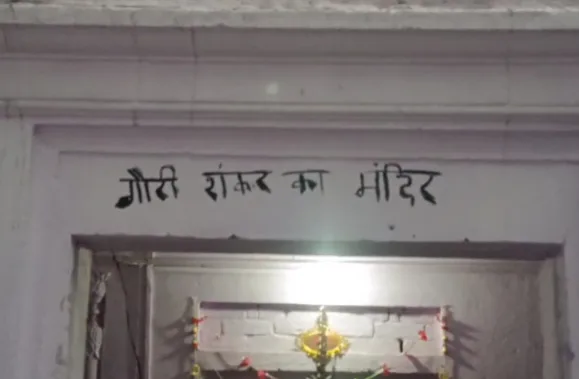 गौरी शंकर का मंदिर